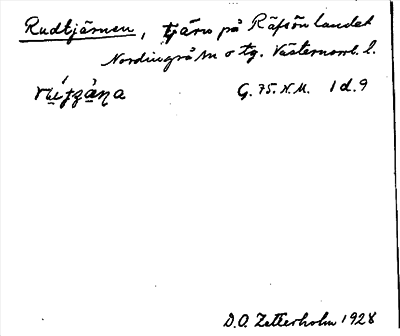 Rudtjärnen, tjärn på Räfsön landet
Nordingrå sn o tg. Västernorrl. l.
G. 75. N.M. 1 d. 9
D.O. Zetterholm 1928